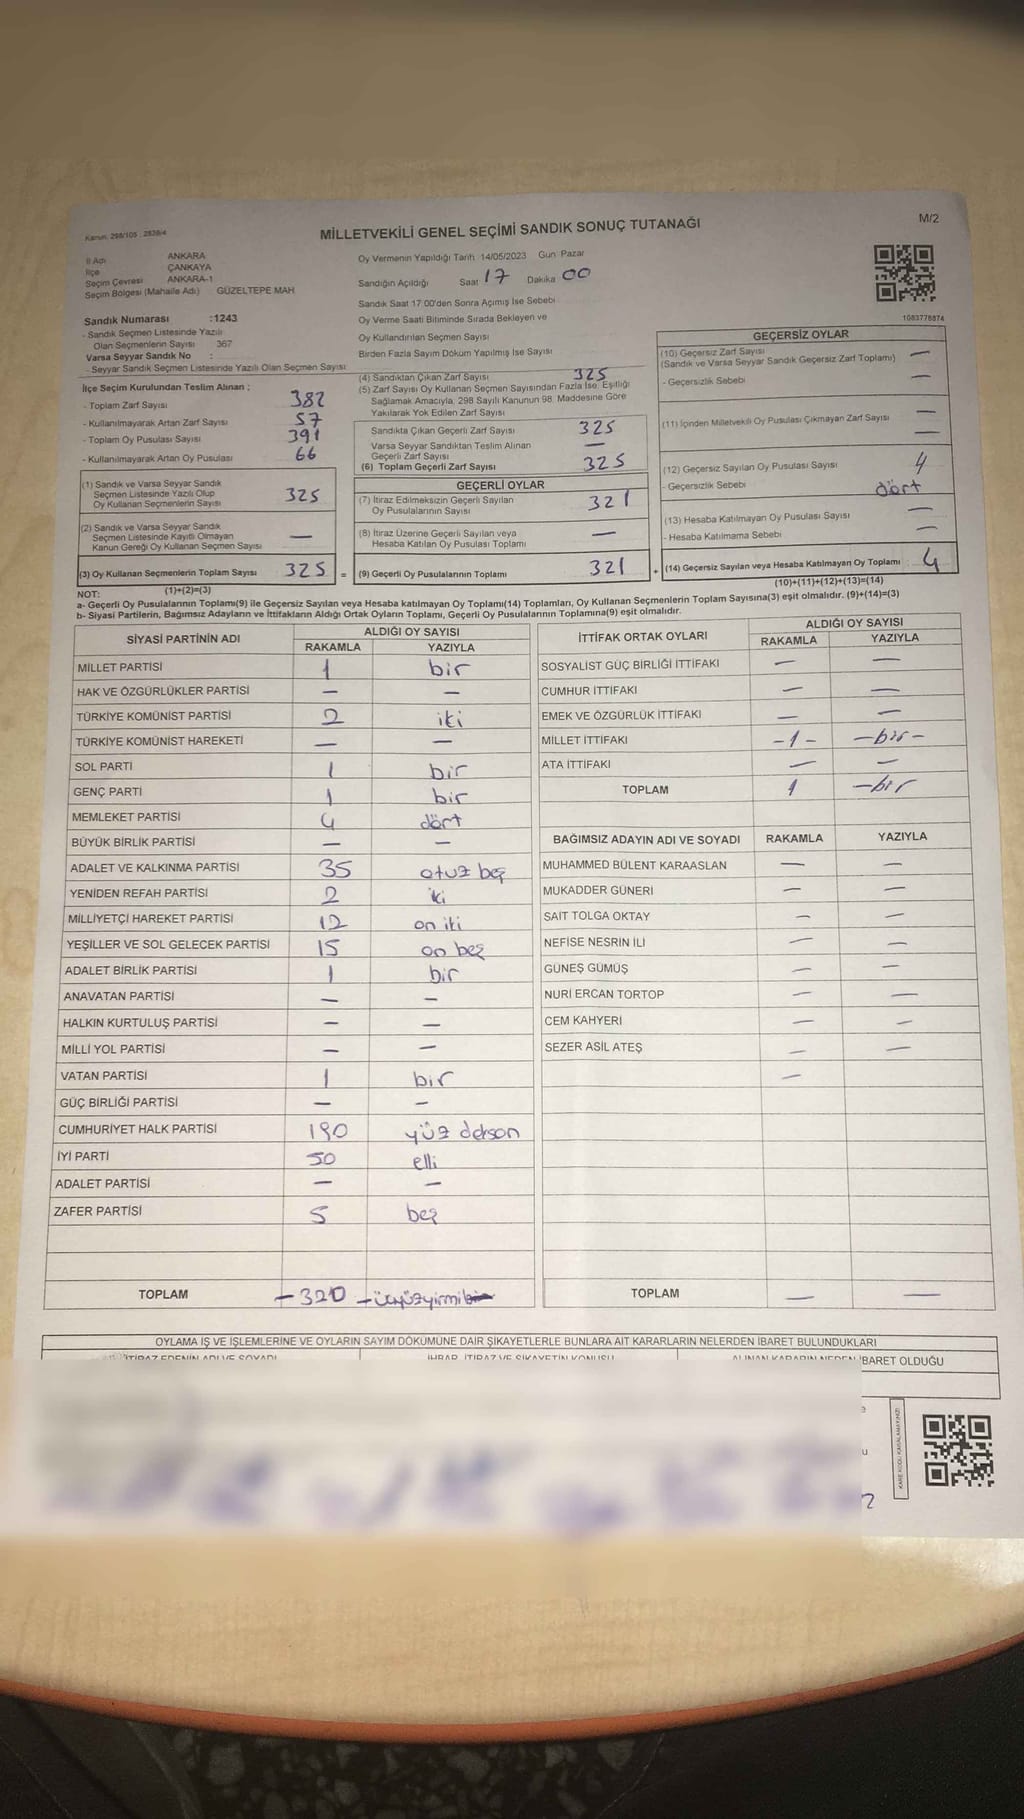 Kanun: 298/105 : 2839/4
MİLLETVEKİLİ GENEL SEÇİMİ SANDIK SONUÇ TUTANAĞI
M/2
İl Adı ANKARA
İlçe ÇANKAYA
Seçim Çevresi ANKARA-1
Seçim Bölgesi (Mahalle Adı) GÜZELTEPE MAH
Oy Vermenin Yapıldığı Tarih 14/05/2023 Gün Pazar
Sandığın Açıldığı Saat 17 Dakika 00
Sandık Saat 17:00'den Sonra Açımış İse Sebebi
Oy Verme Saati Bitiminde Sırada Bekleyen ve
Oy Kullandırılan Seçmen Sayısı
Birden Fazla Sayım Döküm Yapılmış İse Sayısı
1083778874
Sandık Numarası :1243
- Sandık Seçmen Listesinde Yazılı
Olan Seçmenlerin Sayısı 367
Varsa Seyyar Sandık No :
- Seyyar Sandık Seçmen Listesinde Yazılı Olan Seçmen Sayısı
İlçe Seçim Kurulundan Teslim Alınan ;
- Toplam Zarf Sayısı 382
- Kullanılmayarak Artan Zarf Sayısı 57
- Toplam Oy Pusulası Sayısı 391
- Kullanılmayarak Artan Oy Pusulası 66
(1) Sandık ve Varsa Seyyar Sandık
Seçmen Listesinde Yazılı Olup
Oy Kullanan Seçmenlerin Sayısı 325
(2) Sandık ve Varsa Seyyar Sandık
Seçmen Listesinde Kayıtlı Olmayan
Kanun Gereği Oy Kullanan Seçmen Sayısı —
(3) Oy Kullanan Seçmenlerin Toplam Sayısı 325 =
(1)+(2)=(3)
(4) Sandıktan Çıkan Zarf Sayısı 325
(5) Zarf Sayısı Oy Kullanan Seçmen Sayısından Fazla İse, Eşitliği
Sağlamak Amacıyla, 298 Sayılı Kanunun 98. Maddesine Göre
Yakılarak Yok Edilen Zarf Sayısı
Sandıkta Çıkan Geçerli Zarf Sayısı 325
Varsa Seyyar Sandıktan Teslim Alınan
Geçerli Zarf Sayısı —
(6) Toplam Geçerli Zarf Sayısı 325
GEÇERLİ OYLAR
(7) İtiraz Edilmeksizin Geçerli Sayılan
Oy Pusulalarının Sayısı 321
(8) İtiraz Üzerine Geçerli Sayılan veya
Hesaba Katılan Oy Pusulası Toplamı —
(9) Geçerli Oy Pusulalarının Toplamı 321 +
GEÇERSİZ OYLAR
(10) Geçersiz Zarf Sayısı —
(Sandık ve Varsa Seyyar Sandık Geçersiz Zarf Toplamı)
- Geçersizlik Sebebi —
(11) İçinden Milletvekili Oy Pusulası Çıkmayan Zarf Sayısı —
—
(12) Geçersiz Sayılan Oy Pusulası Sayısı 4
- Geçersizlik Sebebi dört
(13) Hesaba Katılmayan Oy Pusulası Sayısı —
- Hesaba Katılmama Sebebi —
(14) Geçersiz Sayılan veya Hesaba Katılmayan Oy Toplamı : 4
(10)+(11)+(12)+(13)=(14)
NOT:
a- Geçerli Oy Pusulalarının Toplamı(9) ile Geçersiz Sayılan veya Hesaba katılmayan Oy Toplamı(14) Toplamları, Oy Kullanan Seçmenlerin Toplam Sayısına(3) eşit olmalıdır. (9)+(14)=(3)
b- Siyasi Partilerin, Bağımsız Adayların ve İttifakların Aldığı Ortak Oyların Toplamı, Geçerli Oy Pusulalarının Toplamına(9) eşit olmalıdır.
SİYASİ PARTİNİN ADI ALDIĞI OY SAYISI
RAKAMLA YAZIYLA
MİLLET PARTİSİ 1 bir
HAK VE ÖZGÜRLÜKLER PARTİSİ — —
TÜRKİYE KOMÜNİST PARTİSİ 2 iki
TÜRKİYE KOMÜNİST HAREKETİ — —
SOL PARTİ 1 bir
GENÇ PARTİ 1 bir
MEMLEKET PARTİSİ 4 dört
BÜYÜK BİRLİK PARTİSİ — —
ADALET VE KALKINMA PARTİSİ 35 otuz beş
YENİDEN REFAH PARTİSİ 2 iki
MİLLİYETÇİ HAREKET PARTİSİ 12 on iki
YEŞİLLER VE SOL GELECEK PARTİSİ 15 on beş
ADALET BİRLİK PARTİSİ 1 bir
ANAVATAN PARTİSİ — —
HALKIN KURTULUŞ PARTİSİ — —
MİLLİ YOL PARTİSİ — —
VATAN PARTİSİ 1 bir
GÜÇ BİRLİĞİ PARTİSİ — —
CUMHURİYET HALK PARTİSİ 190 yüz
İYİ PARTİ 50 elli
ADALET PARTİSİ — —
ZAFER PARTİSİ 5 beş
TOPLAM —320 —üçyüzyirmi
İTTİFAK ORTAK OYLARI ALDIĞI OY SAYISI
RAKAMLA YAZIYLA
SOSYALİST GÜÇ BİRLİĞİ İTTİFAKI — —
CUMHUR İTTİFAKI — —
EMEK VE ÖZGÜRLÜK İTTİFAKI — —
MİLLET İTTİFAKI -1- -bir-
ATA İTTİFAKI — —
TOPLAM 1 -bir
BAĞIMSIZ ADAYIN ADI VE SOYADI RAKAMLA YAZIYLA
MUHAMMED BÜLENT KARAASLAN — —
MUKADDER GÜNERİ — —
SAİT TOLGA OKTAY — —
NEFİSE NESRİN İLİ — —
GÜNEŞ GÜMÜŞ — —
NURİ ERCAN TORTOP — —
CEM KAHYERİ — —
SEZER ASİL ATEŞ — —
—
TOPLAM — —
OYLAMA İŞ VE İŞLEMLERİNE VE OYLARIN SAYIM DÖKÜMÜNE DAİR ŞİKAYETLERLE BUNLARA AİT KARARLARIN NELERDEN İBARET BULUNDUKLARI
İTİRAZ EDENİN ADI VE SOYADI İHBAR, İTİRAZ VE ŞİKAYETİN KONUSU ALINAN KARARIN NEDEN İBARET OLDUĞU